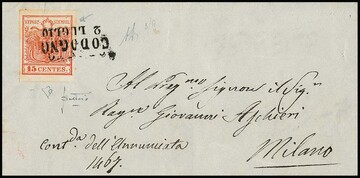 CODOGNO
2 LUGLIO
15 CENTES.
Al Preg.mo Signore il Sig.r
Rag.r Giovanni Aghieri
Cont.da dell'Annunciata
1467.
Milano